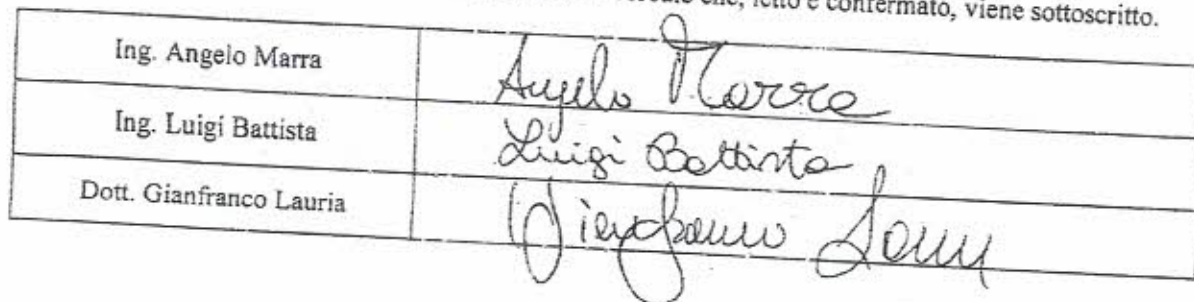 che, letto e confermato, viene sottoscritto.
Ing. Angelo Marra
Angelo Marra
Ing. Luigi Battista
Luigi Battista
Dott. Gianfranco Lauria
Gianfranco